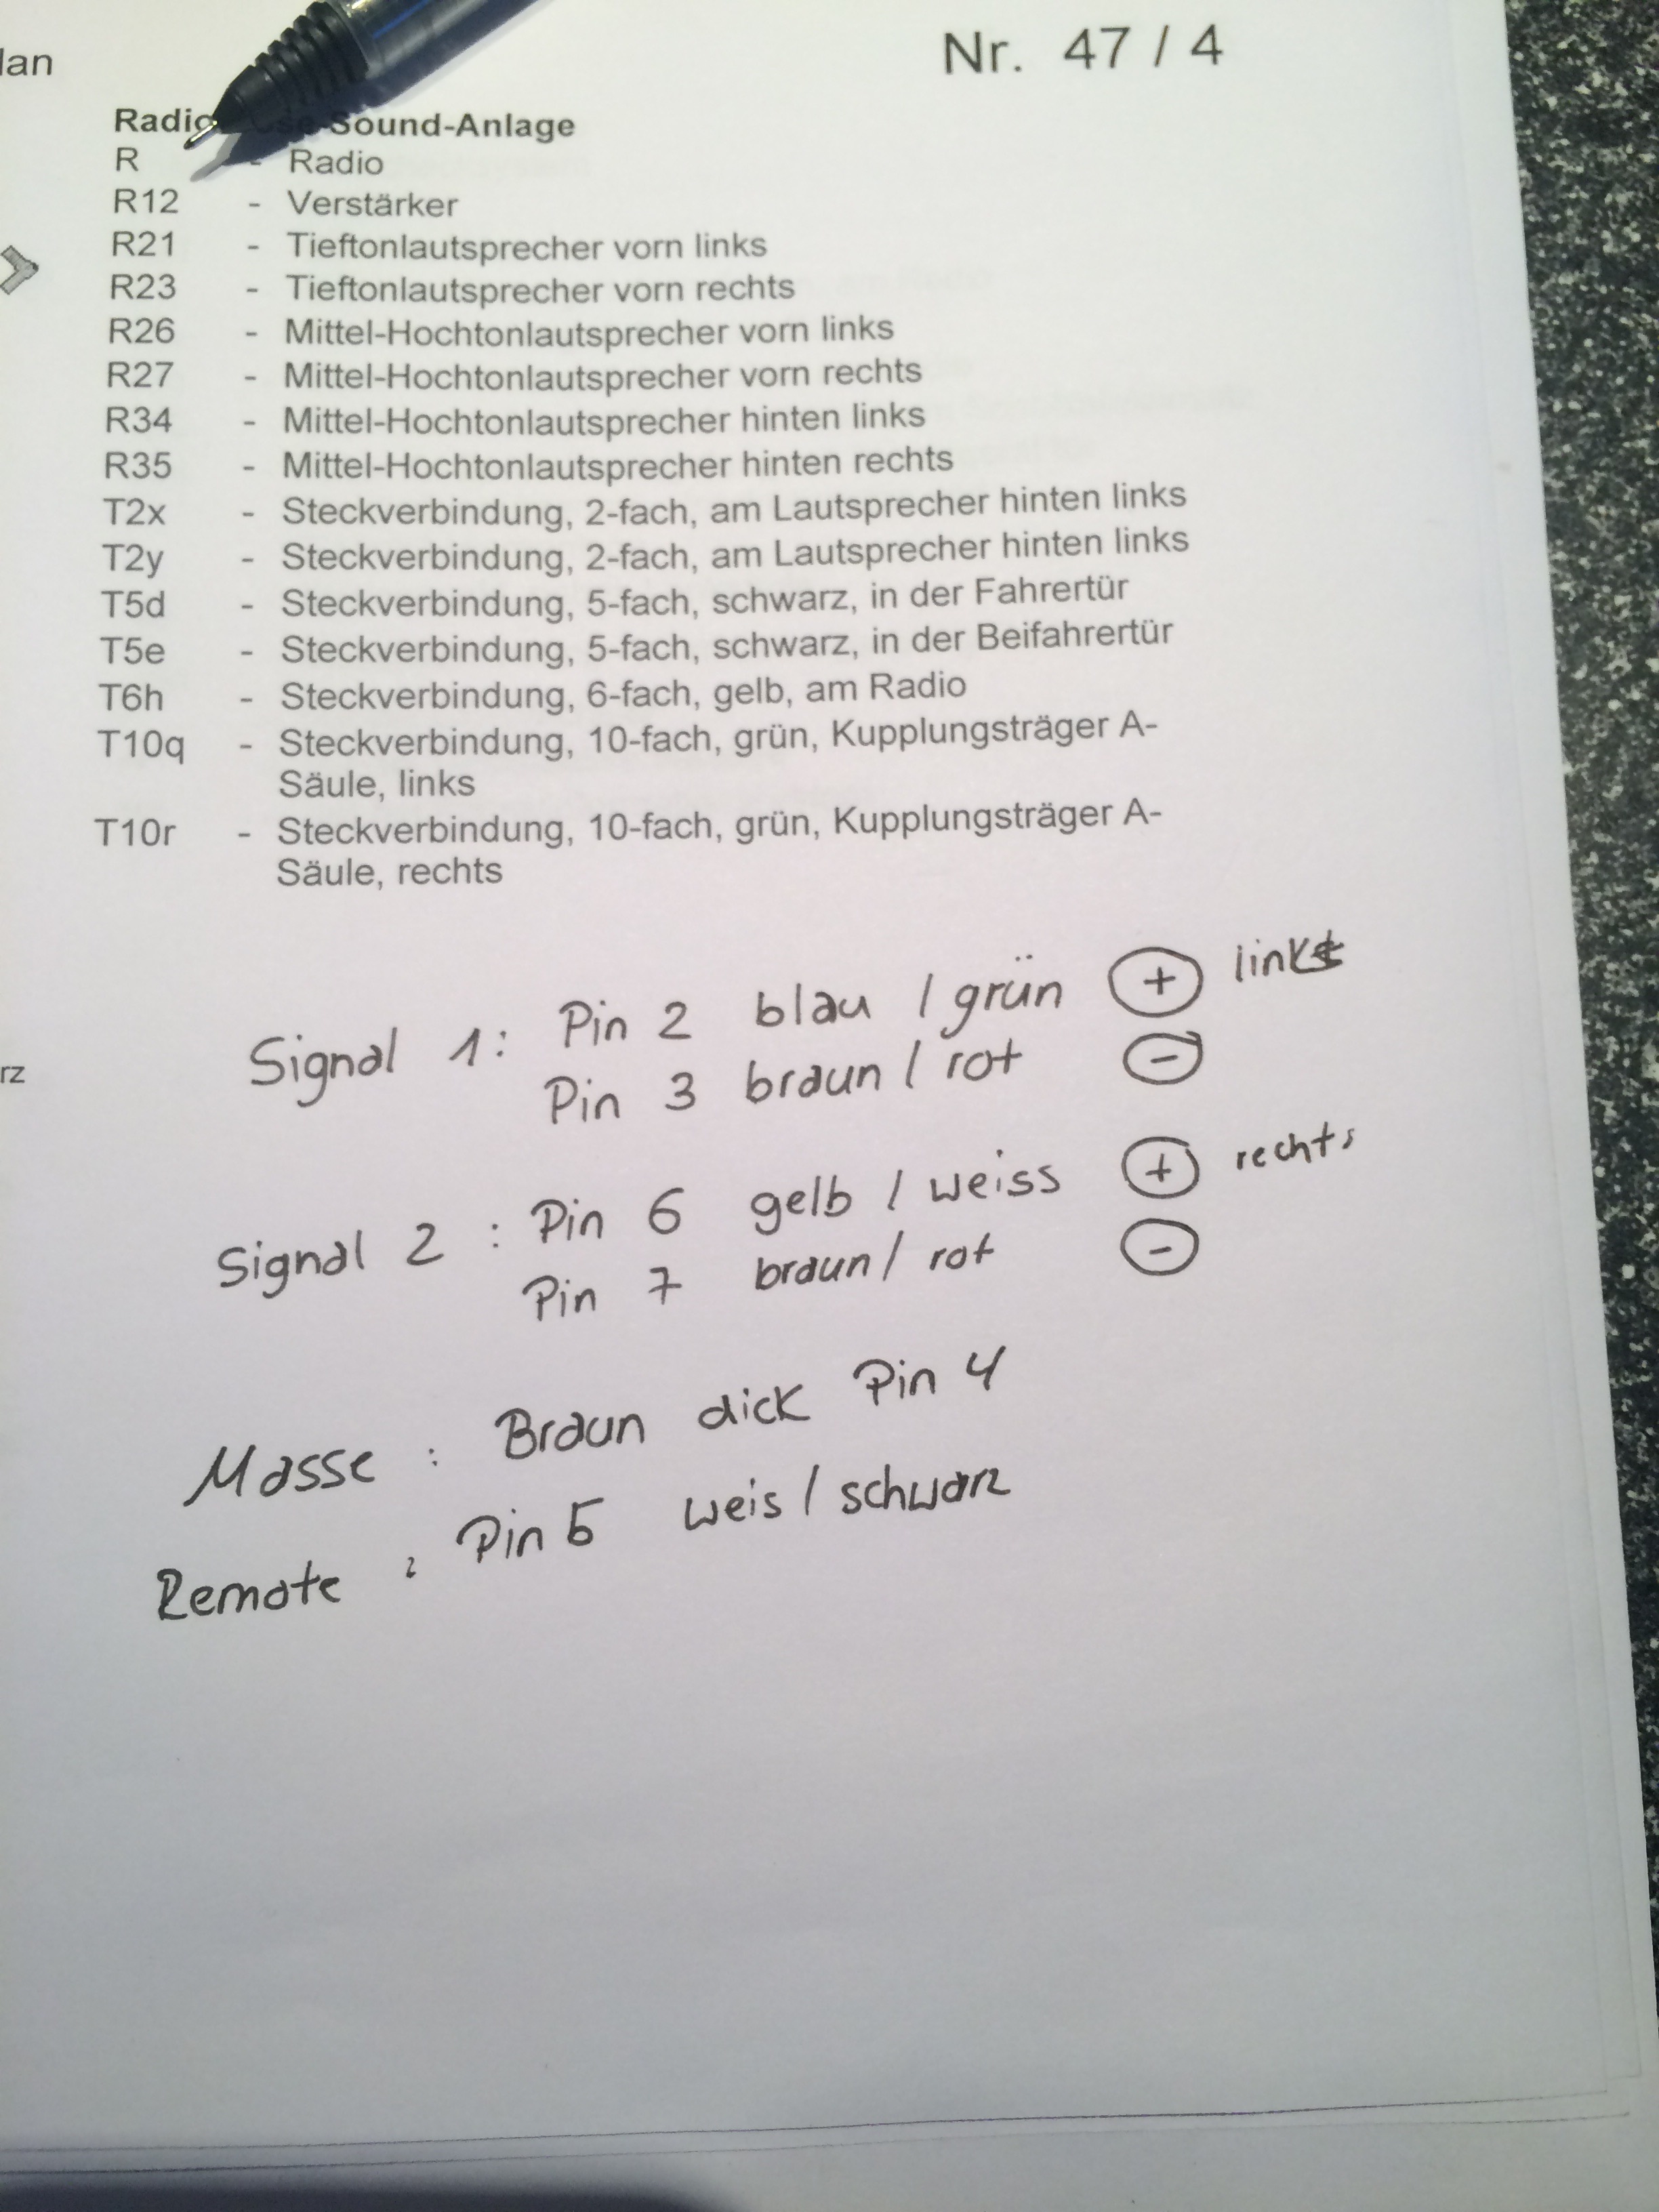 lan
Nr. 47 / 4
Sound-Anlage
R - Radio
R12 - Verstärker
R21 - Tieftonlautsprecher vorn links
R23 - Tieftonlautsprecher vorn rechts
R26 - Mittel-Hochtonlautsprecher vorn links
R27 - Mittel-Hochtonlautsprecher vorn rechts
R34 - Mittel-Hochtonlautsprecher hinten links
R35 - Mittel-Hochtonlautsprecher hinten rechts
T2x - Steckverbindung, 2-fach, am Lautsprecher hinten links
T2y - Steckverbindung, 2-fach, am Lautsprecher hinten links
T5d - Steckverbindung, 5-fach, schwarz, in der Fahrertür
T5e - Steckverbindung, 5-fach, schwarz, in der Beifahrertür
T6h - Steckverbindung, 6-fach, gelb, am Radio
T10q - Steckverbindung, 10-fach, grün, Kupplungsträger A-
Säule, links
T10r - Steckverbindung, 10-fach, grün, Kupplungsträger A-
Säule, rechts
Signal 1: Pin 2 blau / grün + links
rz
Pin 3 braun / rot -
Signal 2 : Pin 6 gelb / weiss + rechts
Pin 7 braun / rot -
Masse : Braun dick Pin 4
Remote : Pin 5 weis / schwarz